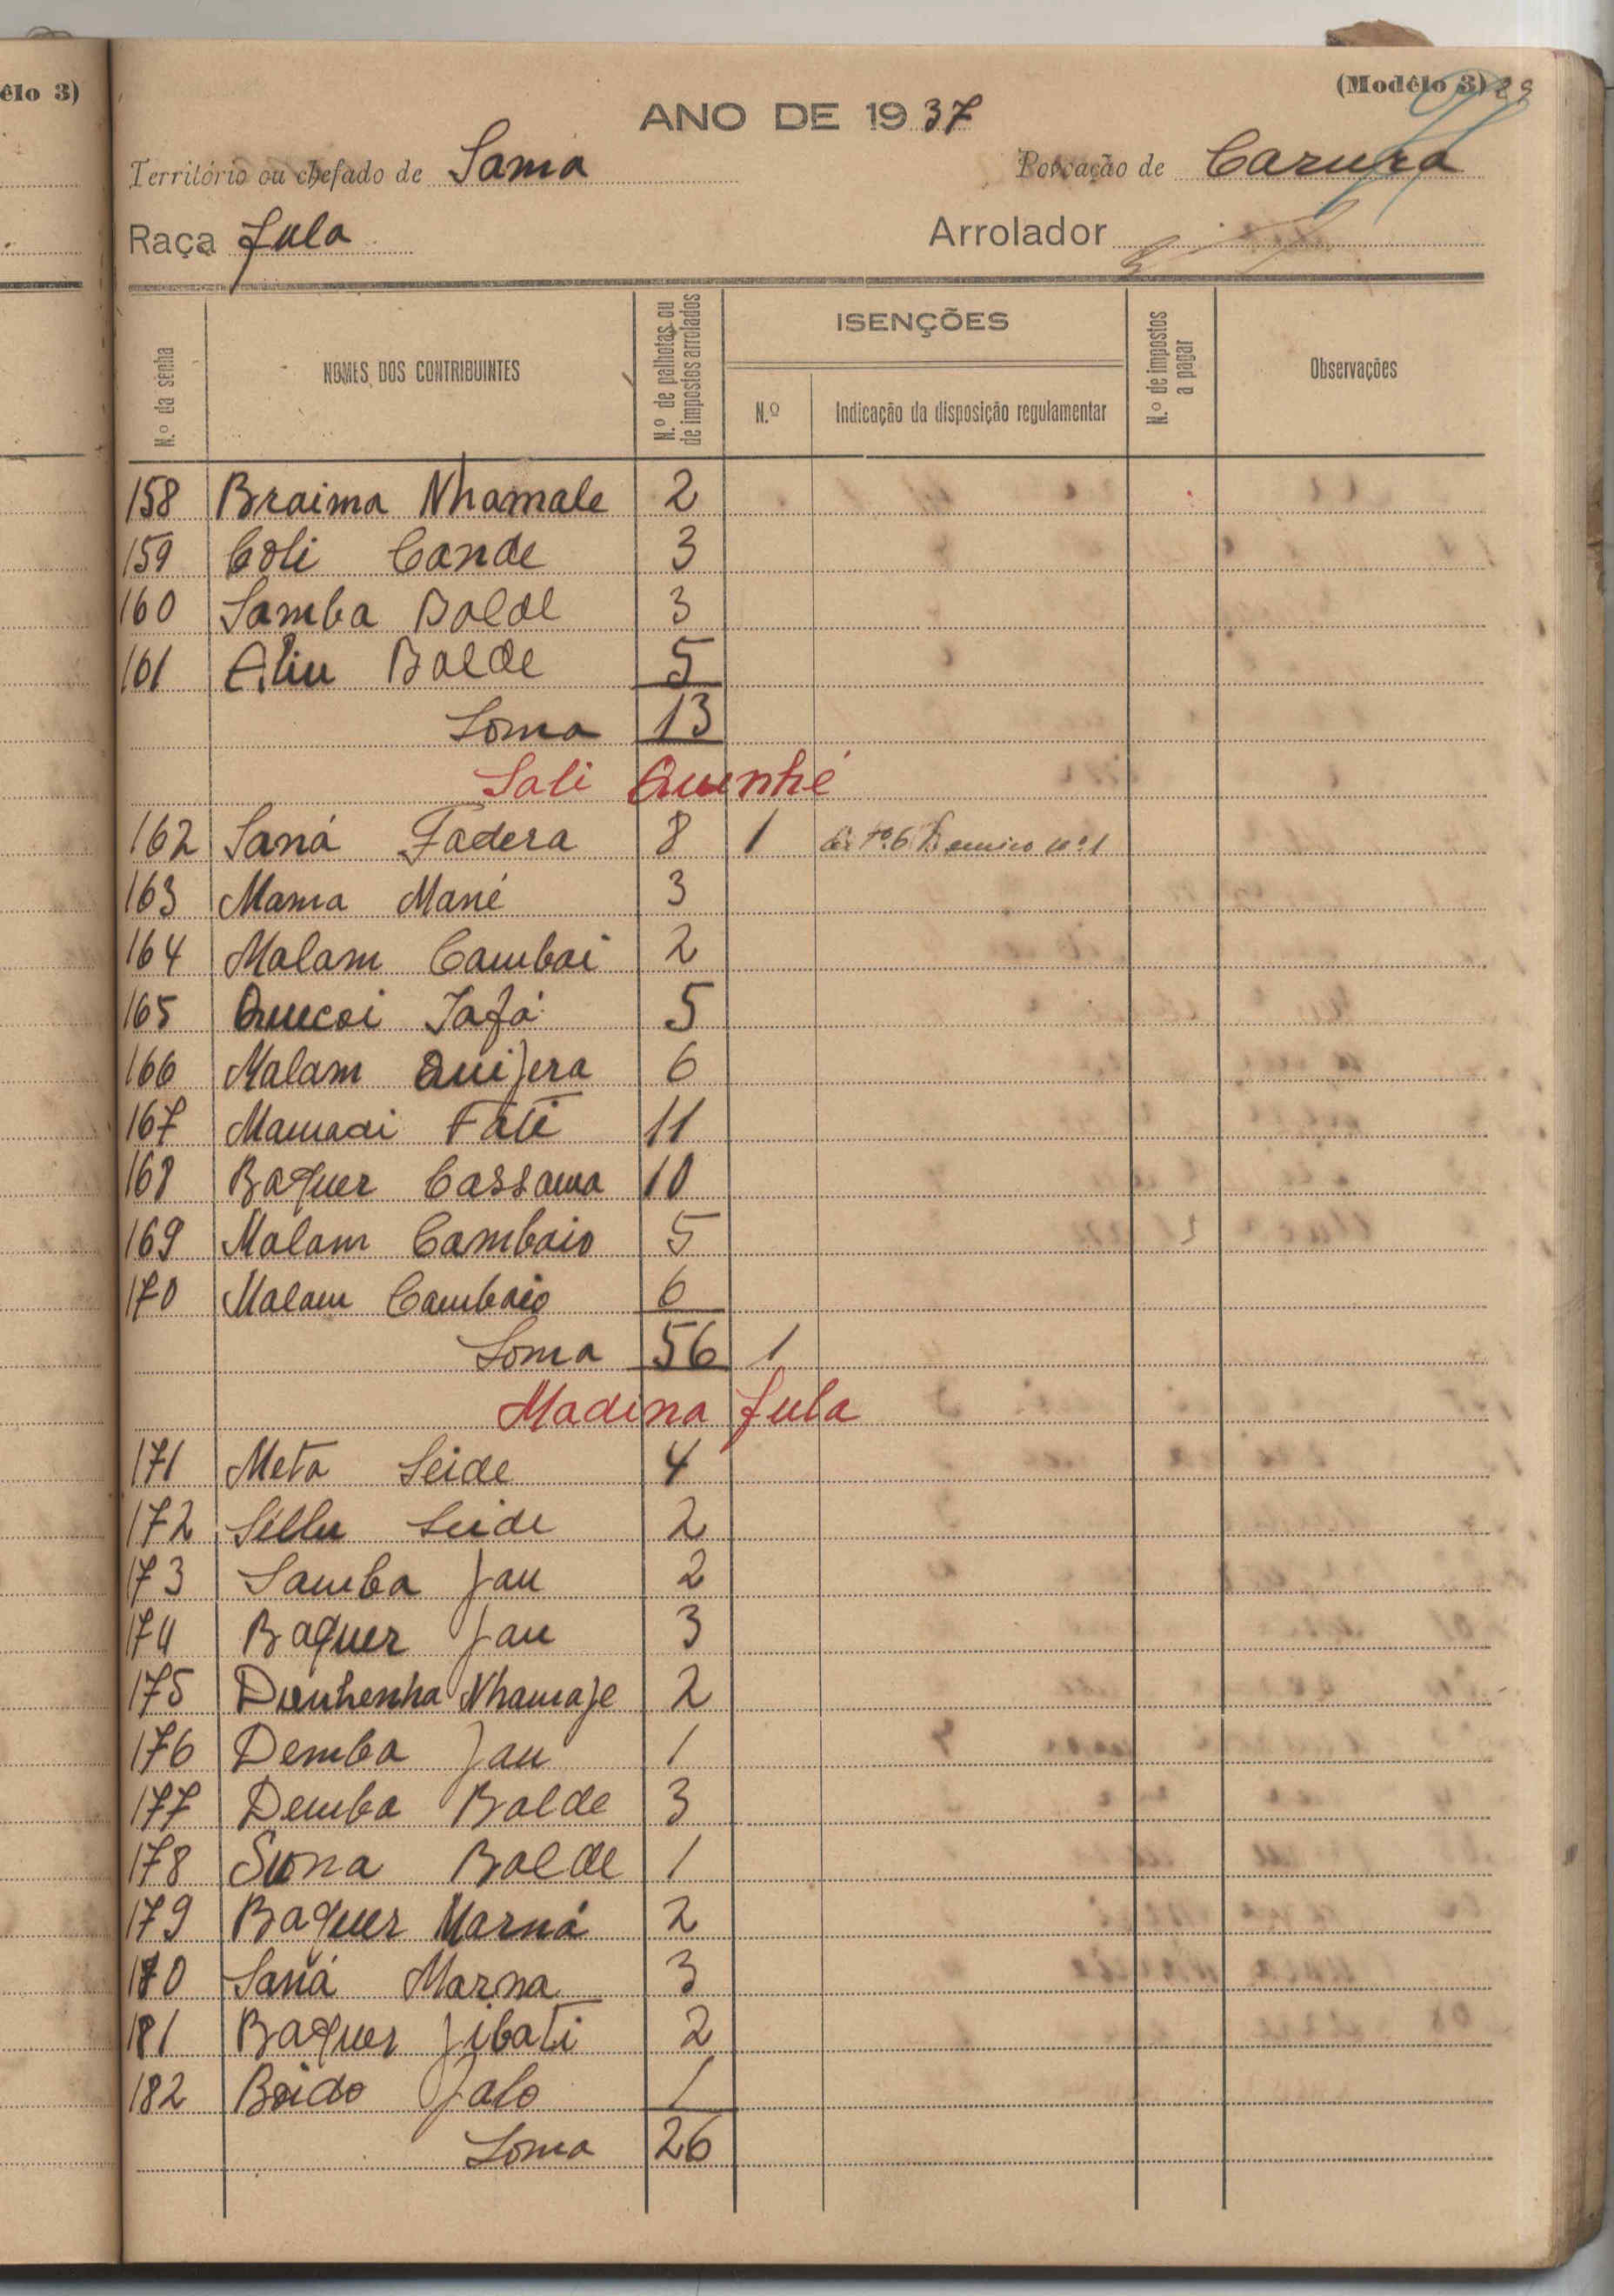 êlo 3)
(Modêlo 3) 29
ANO DE 1937
Território ou chefado de Sama
Povoação de Carura
Raça Fula
Arrolador
N.º da senha
NOMES DOS CONTRIBUINTES
N.º de palhotas ou de impostos arrolados
ISENÇÕES
N.º
Indicação da disposição regulamentar
N.º de impostos a pagar
Observações
158 Braima Nhamale 2
159 Coli Cande 3
160 Samba Balde 3
161 Aliu Balde 5
Soma 13
Sali Quenhé
162 Saná Fadera 8 1 nº 1
163 Mama Mané 3
164 Malam Cambai 2
165 Quecoi Jafá 5
166 Malam Quijera 6
167 Mamadi Fati 11
168 Baquer Cassama 10
169 Malam Cambaio 5
170 Malam Cambaio 6
Soma 56 1
Madina fula
171 Meta Seide 4
172 Sellu Seide 2
173 Samba Jau 2
174 Baquer Jau 3
175 Nhamaje 2
176 Demba Jau 1
177 Demba Balde 3
178 Suna Balde 1
179 Baquer Marná 2
180 Saná Marna 3
181 Baquer Jibati 2
182 Boido Jalo 1
Soma 26